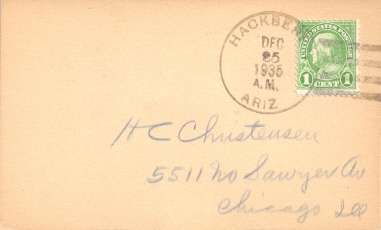 HACKBE
DEC
25
1935
A.M.
ARIZ
UNITED STATES POSTAGE
1 CENT 1
H C Christensen
5511 No Sawyer Av
Chicago Ill